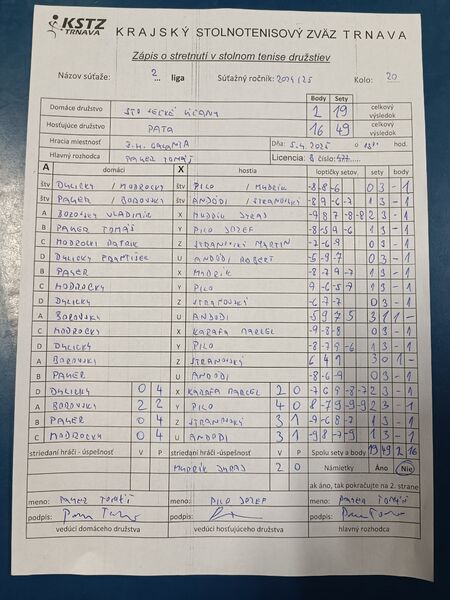 KSTZ TRNAVA KRAJSKÝ STOLNOTENISOVÝ ZVÄZ TRNAVA
Zápis o stretnutí v stolnom tenise družstiev
Názov súťaže: 2 ... liga Súťažný ročník: 2024/25 Kolo: 20
Body Sety
Domáce družstvo 2 19 celkový výsledok
Hosťujúce družstvo PATA 16 49 celkový výsledok
Hracia miestnosť GALANTA Dňa: 5.4.2025 o hod.
Hlavný rozhodca PAYER TOMÁŠ Licencia: B číslo:
A domáci X hostia loptičky setov sety body
štv DULICKY / MODROCKY štv PILO / MUDRIK -8 -8 -6 0 3 - 1
štv PAYER / BOROVSKY štv ANDÓDI / STRANOVSKY -8 9 -6 -7 1 3 - 1
A BOROVSKY VLADIMIR X -9 8 7 -8 -8 2 3 - 1
B PAYER TOMÁŠ Y PILO JOZEF -8 -5 9 -6 1 3 - 1
C MODROCKY PATRIK Z MARTIN -7 -6 -9 0 3 - 1
D DULICKY FRANTIŠEK U ANDÓDI ROBERT -5 -9 -7 0 3 - 1
B PAYER X MUDRIK -8 7 -9 -7 1 3 - 1
C MODROCKY Y PILO 9 -6 -5 -7 1 3 - 1
D DULICKY Z STRANOVSKY -6 -7 -7 0 3 - 1
A BOROVSKY U ANDÓDI -5 9 7 5 3 1 1 -
C MODROCKY X KARAFA MARCEL -9 -8 -8 0 3 - 1
D DULICKY Y PILO -8 -7 9 -6 1 3 - 1
A BOROVSKY Z STRANOVSKÝ 6 4 9 3 0 1 -
B PAYER U ANDÓDI -8 -6 -9 0 3 - 1
D DULICKY 0 4 X KARAFA MARCEL 2 0 -7 6 9 -8 -7 2 3 - 1
A BOROVSKY 2 2 Y PILO 4 0 8 -7 9 -9 -9 2 3 - 1
B PAYER 0 4 Z STRANOVSKÝ 3 1 -9 6 -8 -7 1 3 - 1
C MODROCKY 0 4 U ANDÓDI 3 1 -9 8 -7 -9 1 3 - 1
striedaní hráči - úspešnosť V P striedaní hráči - úspešnosť V P Spolu sety a body 19 49 2 16
MUDRIK 2 0 Námietky Áno Nie
ak áno, tak pokračujte na 2. strane
meno: PAYER TOMÁŠ meno: PILO JOZEF meno: PAYER TOMÁŠ
podpis: podpis: podpis:
vedúci domáceho družstva vedúci hosťujúceho družstva hlavný rozhodca